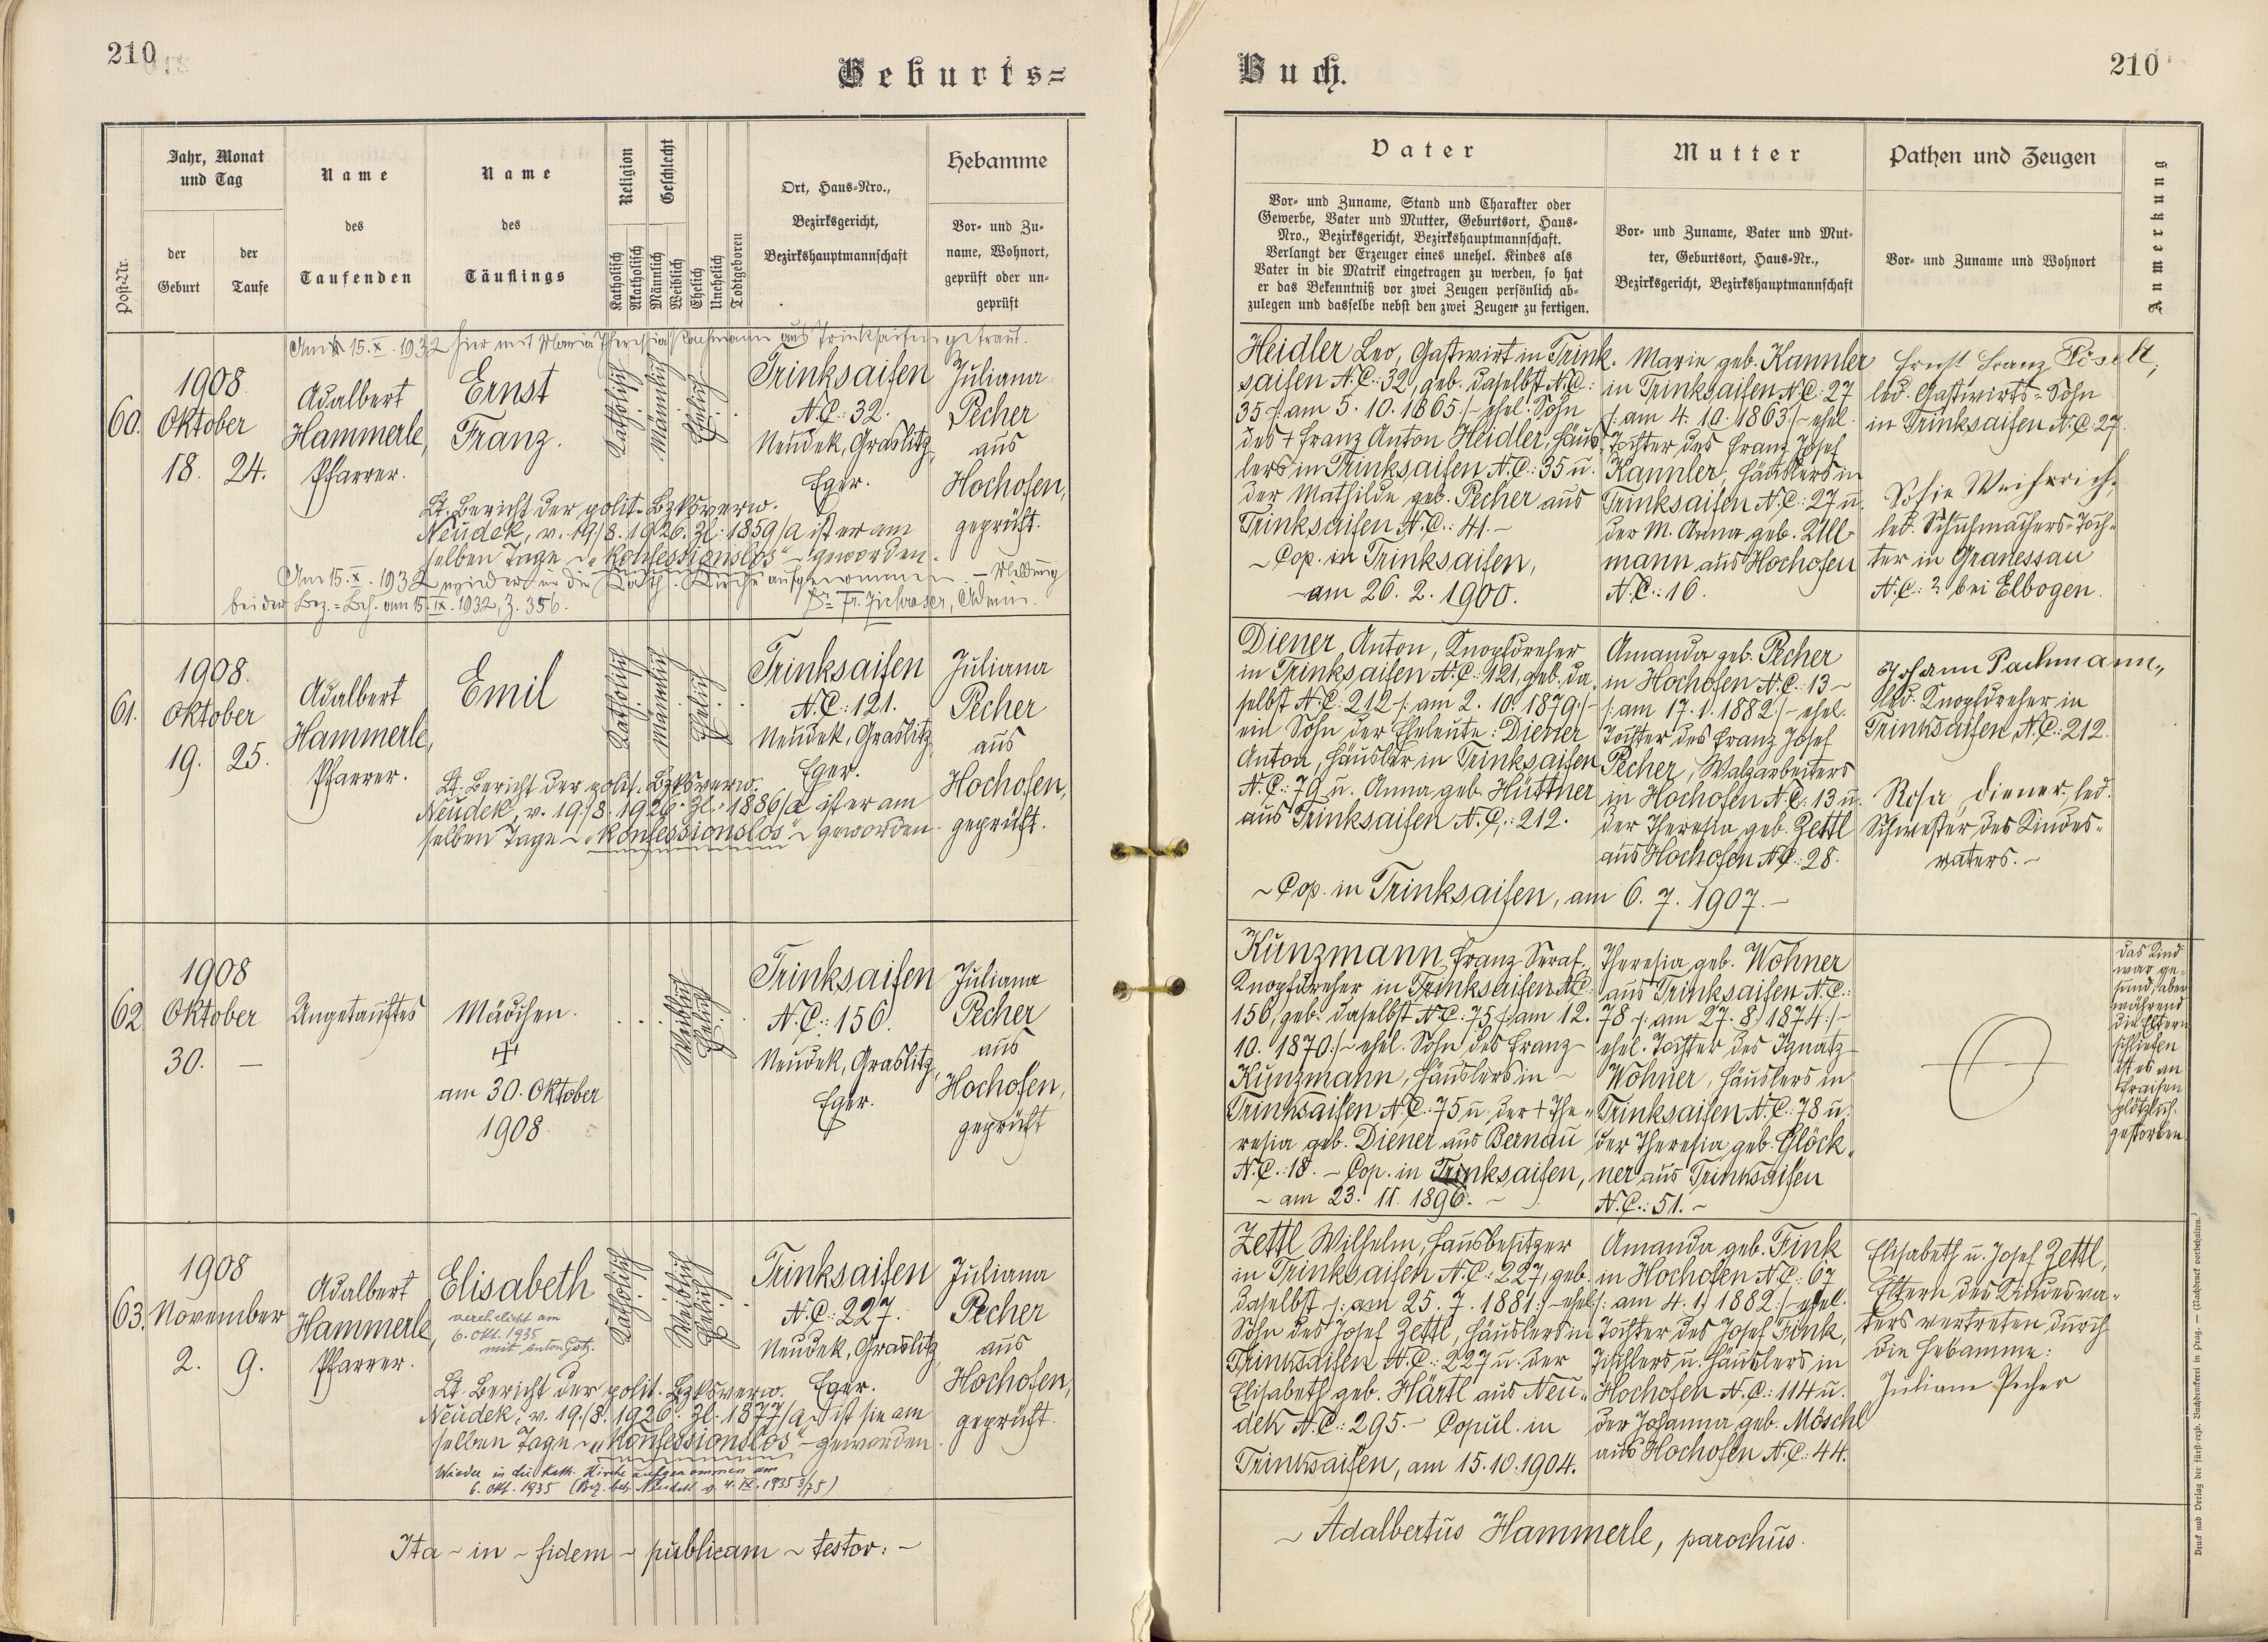 210
Geburts=
Jahr, Monat
und Tag
der
Geburt
der
Taufe
Post-Nr.
Name
des
Taufenden
Name
des
Täuflings
Religion
Katholisch
Akatholisch
Geschlecht
Männlich
Weiblich
Ehelich
Unehelich
Todtgeboren
Ort, Haus-Nro.,
Bezirksgericht,
Bezirkshauptmannschaft
Hebamme
Vor- und Zu-
name, Wohnort,
geprüft oder un-
geprüft
Am 15.X.1932 hier mit Maria Theresia Pachmann aus Trinksaifen getraut.
60.
1908
Oktober
18. 24.
Adalbert
Hammerle,
Pfarrer.
Ernst
Franz.
Katholisch
Männlich
Ehelich
Trinksaifen
N.C.: 32.
Neudek, Graslitz,
Eger.
Juliana
Pecher
aus
Hochofen,
geprüft.
Lt. Bericht der polit. Bzksverw.
Neudek, v. 19./8. 1926. Zl: 1859/a ist er am
selben Tage "konfessionslos" geworden.
Am 15.X.1932 wieder in die kath. Kirche aufgenommen. – Meldung
bei der Bez.-Beh. am 15.IX.1932, Z. 356.
61.
1908.
Oktober
19. 25.
Adalbert
Hammerle,
Pfarrer.
Emil
Katholisch
Männlich
Ehelich
Trinksaifen
N.C.: 121.
Neudek, Graslitz,
Eger.
Juliana
Pecher
aus
Hochofen,
geprüft.
Lt. Bericht der polit. Bzksverw.
Neudek, v. 19./8. 1926. Zl: 1886/a ist er am
selben Tage "konfessionslos" geworden.
62.
1908
Oktober
30. –
Ungetauftes
Mädchen.
am 30. Oktober
1908
Weiblich
Ehelich
Trinksaifen
N.C.: 156.
Neudek, Graslitz,
Eger.
Juliana
Pecher
aus
Hochofen,
geprüft
63.
1908
November
2. 9.
Adalbert
Hammerle,
Pfarrer.
Elisabeth
verehelicht am
6. Okt. 1935
mit Anton Götz.
Katholisch
Weiblich
Ehelich
Trinksaifen
N.C.: 227.
Neudek, Graslitz,
Eger.
Juliana
Pecher
aus
Hochofen,
geprüft.
Lt. Bericht der polit. Bzksverw.
Neudek, v. 19./8. 1926. Zl: 1877/a ist sie am
selben Tage "konfessionslos" – geworden.
Wieder in die kath. Kirche aufgenommen am
6. Okt. 1935 (Bez. beh. Neudek v. 4.IX.1935
Ita – in – fidem – publicam – testor: –
Buch.
210
Vater
Vor- und Zuname, Stand und Charakter oder
Gewerbe, Vater und Mutter, Geburtsort, Haus-
Nro., Bezirksgericht, Bezirkshauptmannschaft.
Verlangt der Erzeuger eines unehel. Kindes als
Vater in die Matrik eingetragen zu werden, so hat
er das Bekenntniß vor zwei Zeugen persönlich ab-
zulegen und dasselbe nebst den zwei Zeugen zu fertigen.
Mutter
Vor- und Zuname, Vater und Mut-
ter, Geburtsort, Haus-Nr.,
Bezirksgericht, Bezirkshauptmannschaft
Pathen und Zeugen
Vor- und Zuname und Wohnort
Anmerkung
Heidler Leo, Gastwirt in Trink-
saifen N.C.: 32, geb. daselbst N.C.:
35 /: am 5. 10. 1865 :/ – ehel. Sohn
des + Franz Anton Heidler, Häus-
lers in Trinksaifen N.C.: 35 u.
der Mathilde geb. Pecher aus
Trinksaifen N.C.: 41. –
– Cop. in Trinksaifen,
– am 26. 2. 1900.
Marie geb. Kannler
in Trinksaifen N.C.: 27
/: am 4. 10. 1863 :/ – ehel.
Tochter des Franz Josef
Kannler, Häuslers in
Trinksaifen N.C.: 27 u.
der M. Anna geb. Ull-
mann aus Hochofen
N.C.: 16.
Ernst Franz Pöselt,
led. Gastwirts-Sohn
in Trinksaifen N.C. 27.
Sofie Weihrich,
led. Schuhmachers-Toch-
ter in Granessau
N.C.: 2 bei Elbogen.
Diener Anton, Knopfdreher
in Trinksaifen N.C.: 121, geb. da-
selbst N.C.: 212 /: am 2. 10. 1879 :/ –
ein Sohn der Eheleute: Diener
Anton, Häusler in Trinksaifen
N.C.: 79 u. Anna geb. Hüttner
aus Trinksaifen N.C.: 212.
– Cop. in Trinksaifen, am 6. 7. 1907. –
Amanda geb. Pecher
in Hochofen N.C.: 13 –
/: am 17. 1. 1882 :/ – ehel.
Tochter des Franz Josef
Pecher, Walzarbeiters
in Hochofen N.C.: 13 u.
der Theresia geb. Zettl
aus Hochofen N.C.: 28.
Johann Pachmann,
led. Knopfdreher in
Trinksaifen, N.C.: 212.
Rosa Diener, led.
Schwester des Kindes-
vaters. –
Kunzmann Franz Seraf.
Knopfdreher in Trinksaifen N.C.
156, geb. daselbst N.C.: 75 /: am 12.
10. 1870 :/ – ehel. Sohn des Franz
Kunzmann, Häuslers in –
Trinksaifen N.C.: 75 u. der + The-
resia geb. Diener aus Bernau
N.C.: 18. – Cop. in Trinksaifen,
– am 23. 11. 1896. –
Theresia geb. Wohner
aus Trinksaifen N.C.:
78 /: am 27. 8. 1874 :/ –
ehel. Tochter des Ignatz
Wohner, Häuslers in
Trinksaifen N.C.: 78 u.
der Theresia geb. Glöck-
ner aus Trinksaifen
N.C.: 51. –
das Kind
war ge-
sund, aber
während
die Eltern
schliefen
ist es an
Fraisen
plötzlich
gestorben.
Zettl Wilhelm, Hausbesitzer
in Trinksaifen N.C.: 227, geb.
daselbst /: am 25. 7. 1881 :/ – ehel.
Sohn des Josef Zettl, Häuslers in
Trinksaifen N.C.: 227 u. der
Elisabeth geb. Härtl aus Neu-
dek N.C.: 295. – Copul. in
Trinksaifen, am 15. 10. 1904.
Amanda geb. Fink
in Hochofen N.C.: 67
/: am 4. 1. 1882 :/ – ehel.
Tochter des Josef Fink,
Tischlers u. Häuslers in
Hochofen N.C.: 114 u.
der Johanna geb. Möschl
aus Hochofen N.C.: 44.
Elisabeth u. Josef Zettl,
Eltern des Kindesva-
ters vertreten durch
die Hebamme:
Juliane Pecher
– Adalbertus Hammerle, parochus.
Druck und Verlag der fürst-erzb. Buchdruckerei in Prag. — (Nachdruck vorbehalten.)